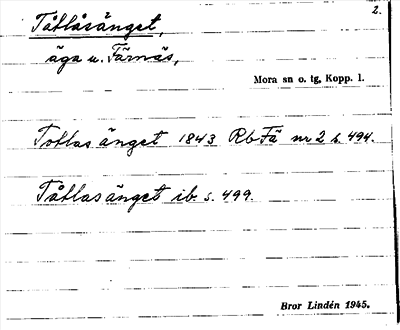 2.
Tåtlåsänget,
äga u. Färnäs,
Mora sn o. tg, Kopp. l.
Totlas änget 1843 Rb Fä nr 2 s. 494.
Tåtlas änget ib. s. 499.
Bror Lindén 1945.